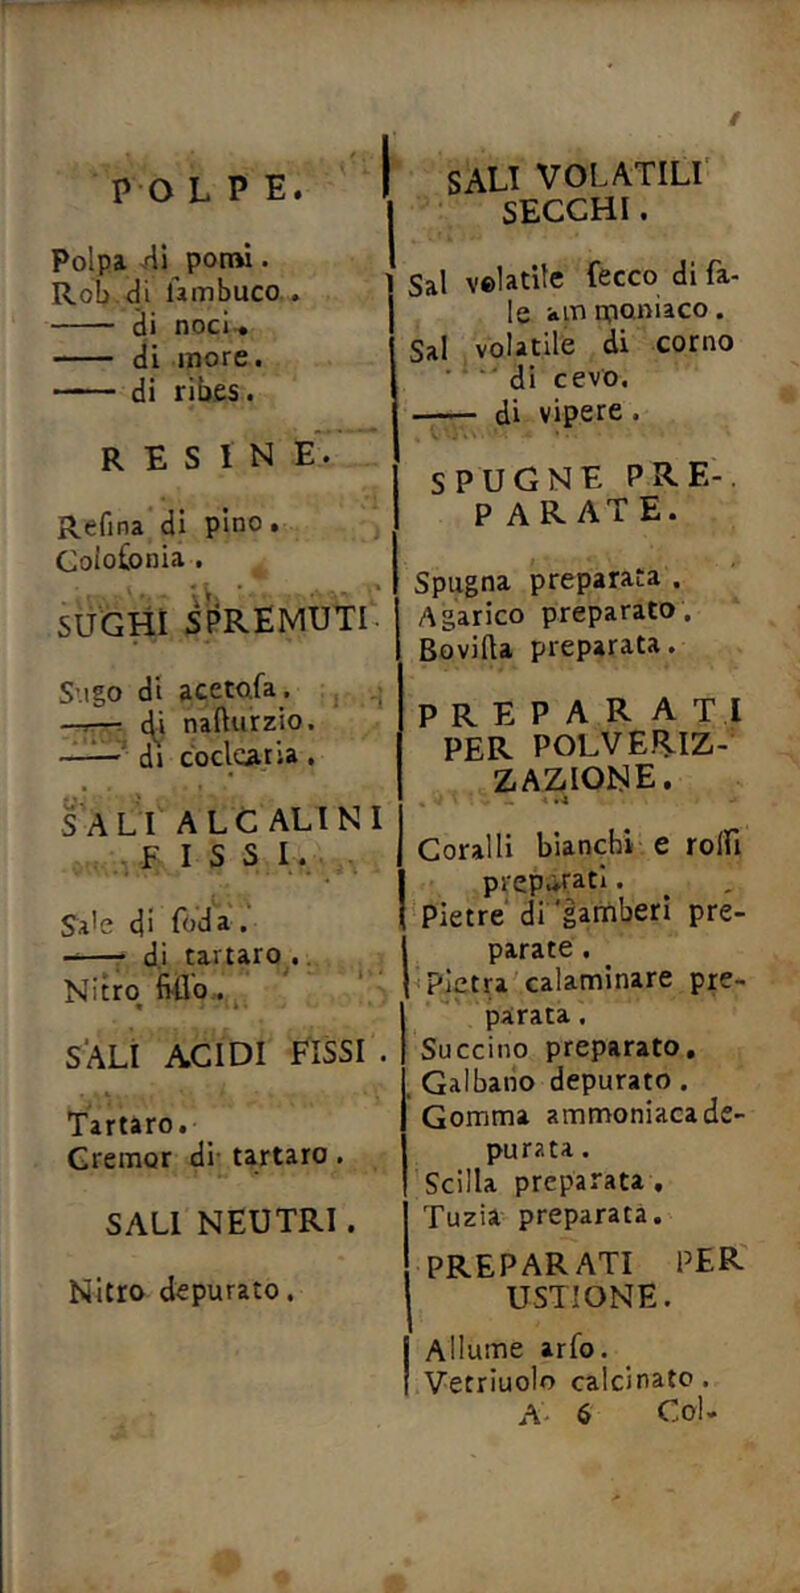 POLPE.
Polpa di pomi.
Rob di ſambuco.
—— di noci.
—— di more.
—— di ribes.
RESINE.
Reſina di pino.
Colofonia.
SUGHI SPREMUTI
Sugo di acetoſa.
—— di naſturzio.
—— di coclearia.
SALI ALCALINI
FISSI.
Sale di ſoda.
—— di tartaro.
Nitro fiſſo.
SALI ACIDI FISSI.
Tartaro.
Cremor di tartaro.
SALI NEUTRI.
Nitro depurato.
SALI VOLATILI
SECCHI.
Sal volatile ſecco di ſa-
le ammoniaco.
Sal volatile di corno
di cevo.
—— di vipere.
SPUGNE PRE-
PARATE.
Spugna preparata.
Agarico preparato.
Boviſta preparata.
PREPARATI
PER POLVERIZ-
ZAZIONE.
Coralli bianchi e roſſi
preparati.
Pietre di gamberi pre-
parate.
Pietra calaminare pre-
parata.
Succino preparato.
Galbano depurato.
Gomma ammoniaca de-
purata.
Scilla preparata.
Tuzia preparata.
PREPARATI PER
USTIONE.
Allume arſo.
Vetriuolo calcinato.
A 6 Col-